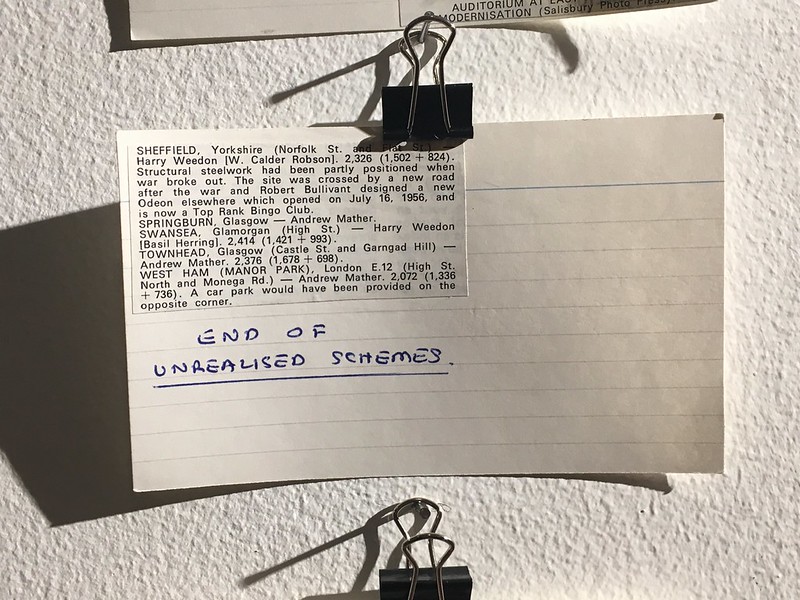 AUDITORIUM AT EAST
MODERNISATION (Salisbury Photo Press).
SHEFFIELD, Yorkshire (Norfolk St. and Flat St.) —
Harry Weedon [W. Calder Robson]. 2,326 (1,502 + 824).
Structural steelwork had been partly positioned when
war broke out. The site was crossed by a new road
after the war and Robert Bullivant designed a new
Odeon elsewhere which opened on July 16, 1956, and
is now a Top Rank Bingo Club.
SPRINGBURN, Glasgow — Andrew Mather.
SWANSEA, Glamorgan (High St.) — Harry Weedon
[Basil Herring]. 2,414 (1,421 + 993).
TOWNHEAD, Glasgow (Castle St. and Garngad Hill) —
Andrew Mather. 2,376 (1,678 + 698).
WEST HAM (MANOR PARK), London E.12 (High St.
North and Monega Rd.) — Andrew Mather. 2,072 (1,336
+ 736). A car park would have been provided on the
opposite corner.
END OF
UNREALISED SCHEMES.